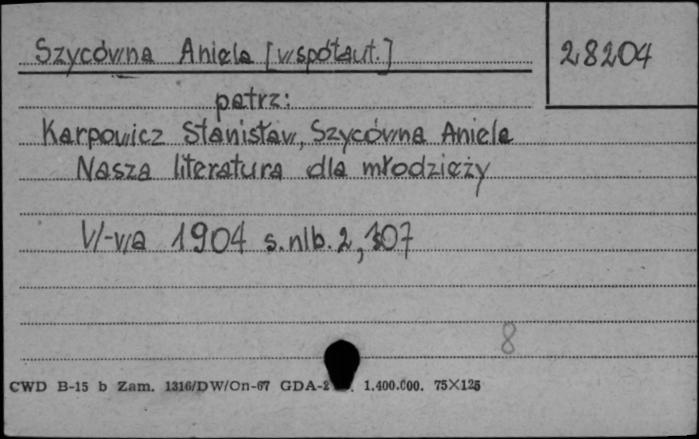 Szycówna Aniela [współaut.]
28204
patrz:
Karpowicz Stanisław, Szycówna Aniela
Nasza literatura dla młodzieży
W-wa 1904 s. nlb. 2, 107
8
CWD B-15 b Zam. 1316/DW/On-67 GDA-2 1.400.000. 75×125